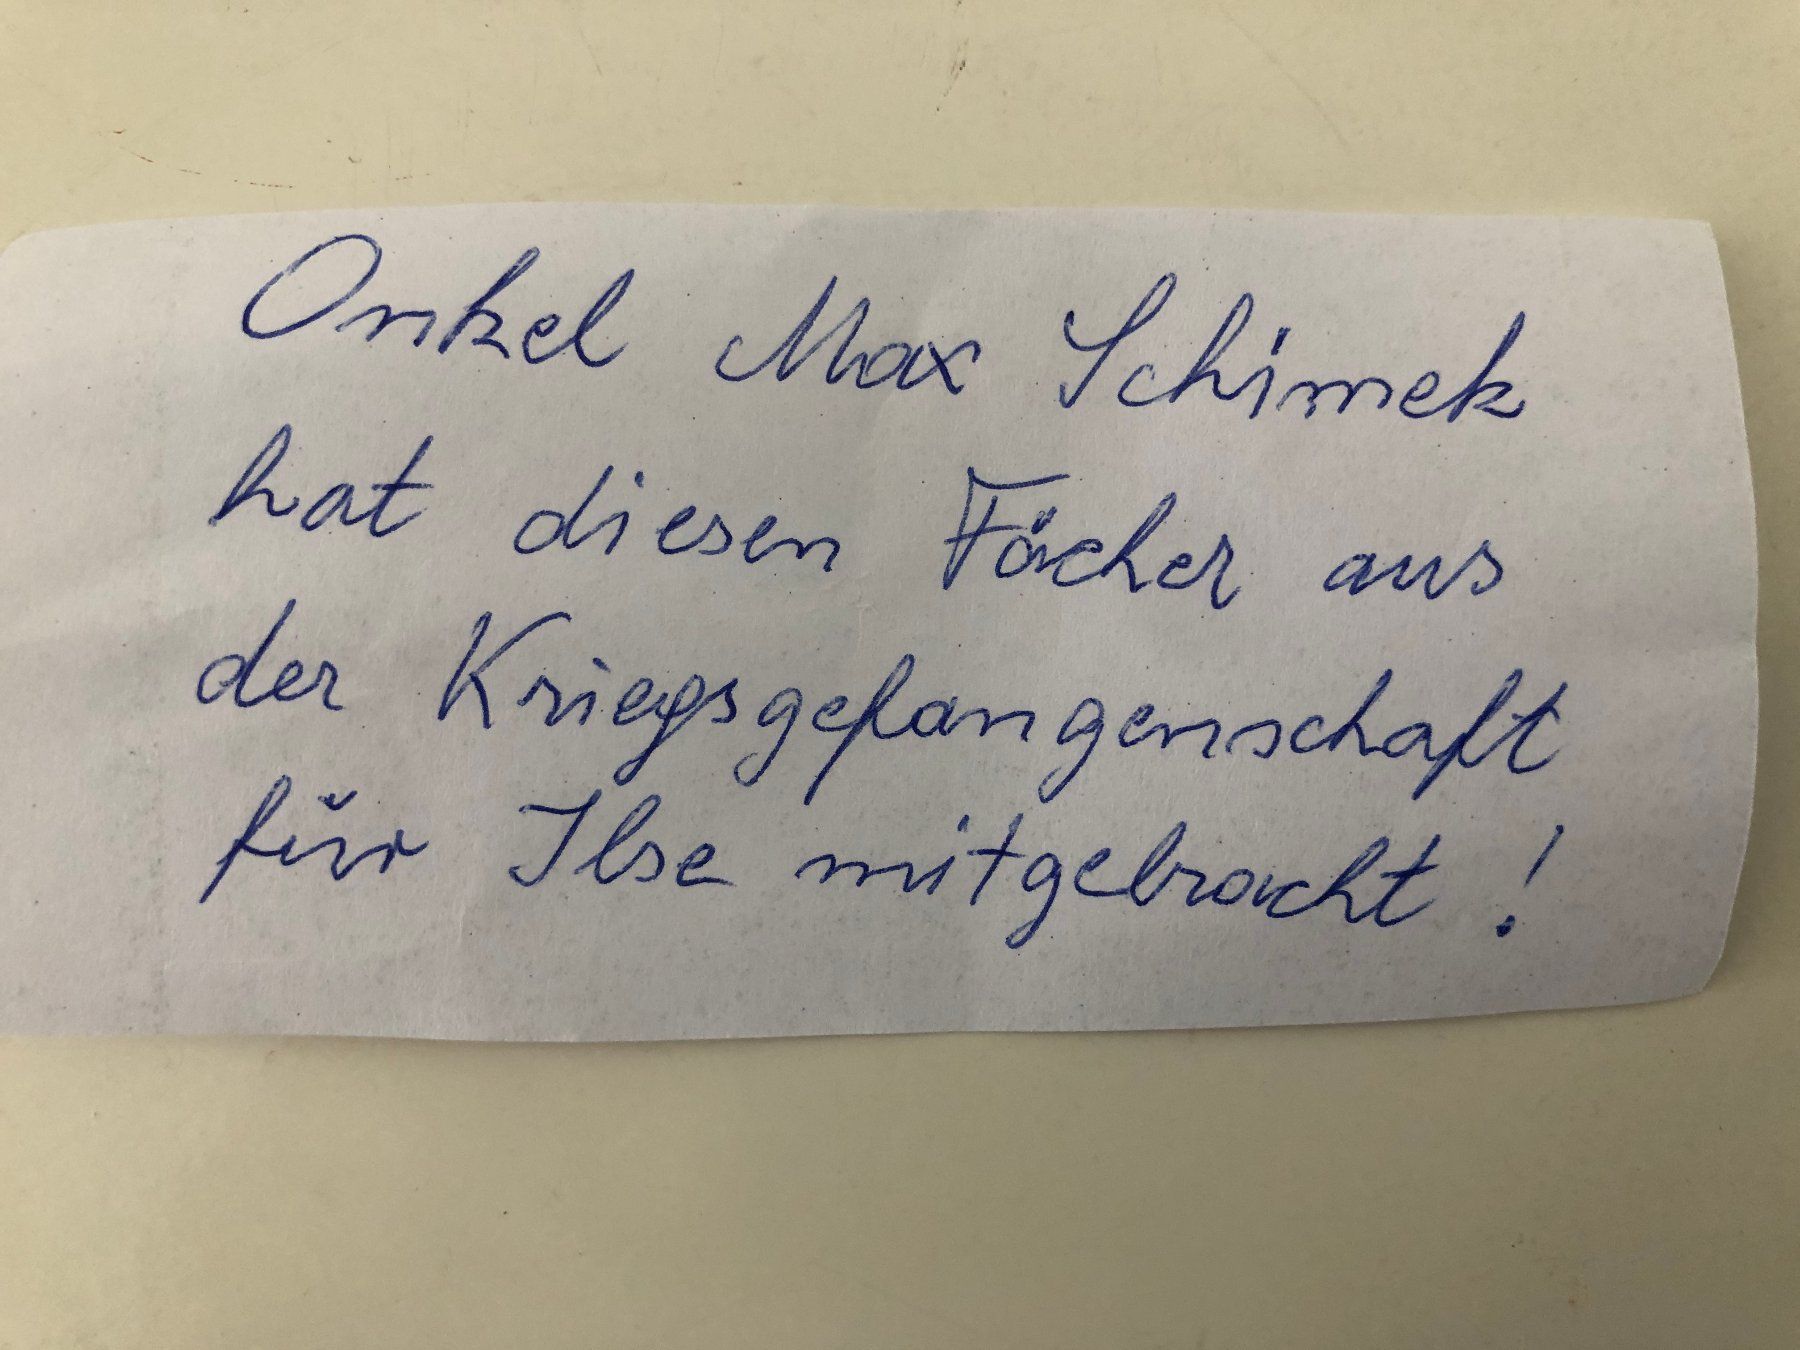 Onkel Max Schimek
hat diesen Fächer aus
der Kriegsgefangenschaft
für Ilse mitgebracht!